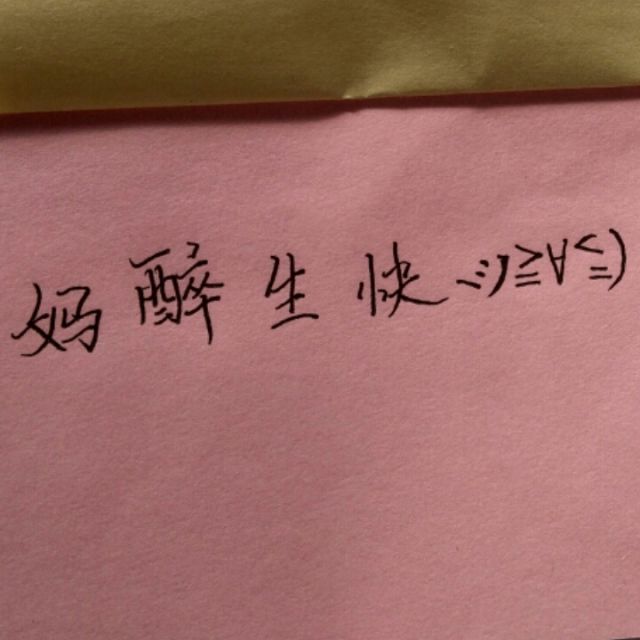 妈醉生快 ~:)(≥∀≤)